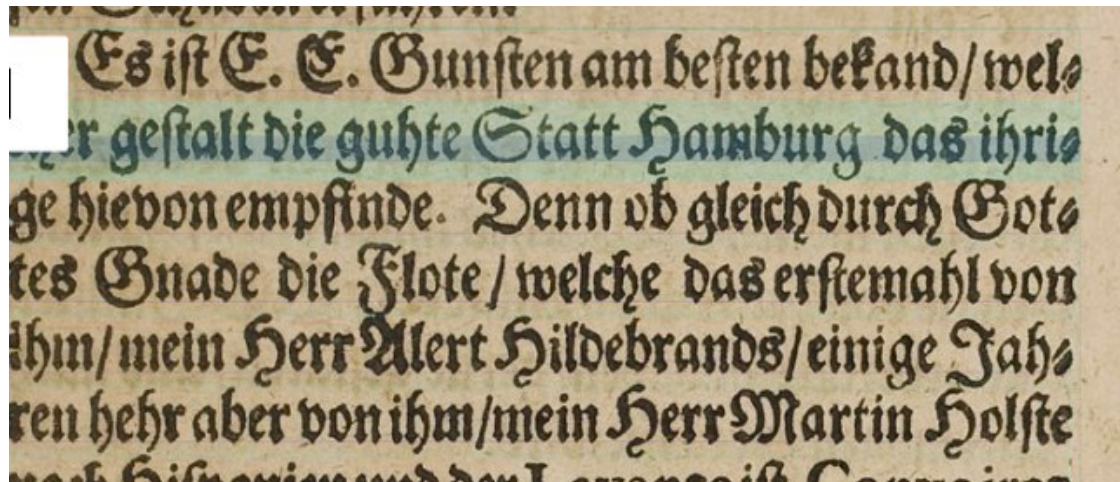 Es iſt E. E. Gunſten am beſten bekand/ wel⸗
er geſtalt die guhte Statt Hamburg das ihri⸗
ge hievon empfinde. Denn ob gleich durch Got⸗
tes Gnade die Flote/ welche das erſtemahl von
ihm/ mein Herr Alert Hildebrands/ einige Jah⸗
ren hehr aber von ihm/ mein Herr Martin Holſte